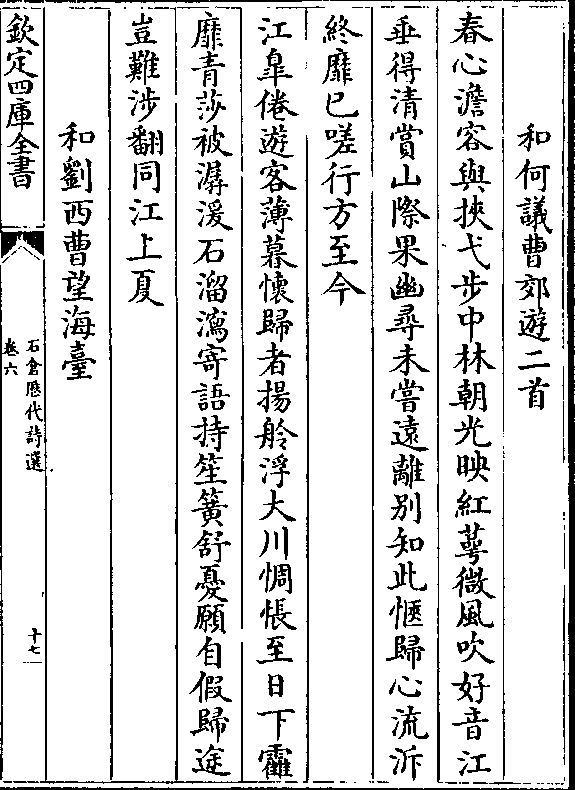 和何議曹郊遊二首
春心澹容與挾弋步中林朝光映紅萼微風吹好音江
垂得清賞山際果幽尋未嘗遠離別知此愜歸心流泝
終靡已嗟行方至今
江臯倦遊客薄暮懷歸者揚舲浮大川惆悵至日下靃
靡青莎被潺湲石溜瀉寄語持笙簧舒憂願自假歸途
豈難涉翻同江上夏
和劉西曹望海臺
欽定四庫全書
石倉歴代詩選
卷六
十七